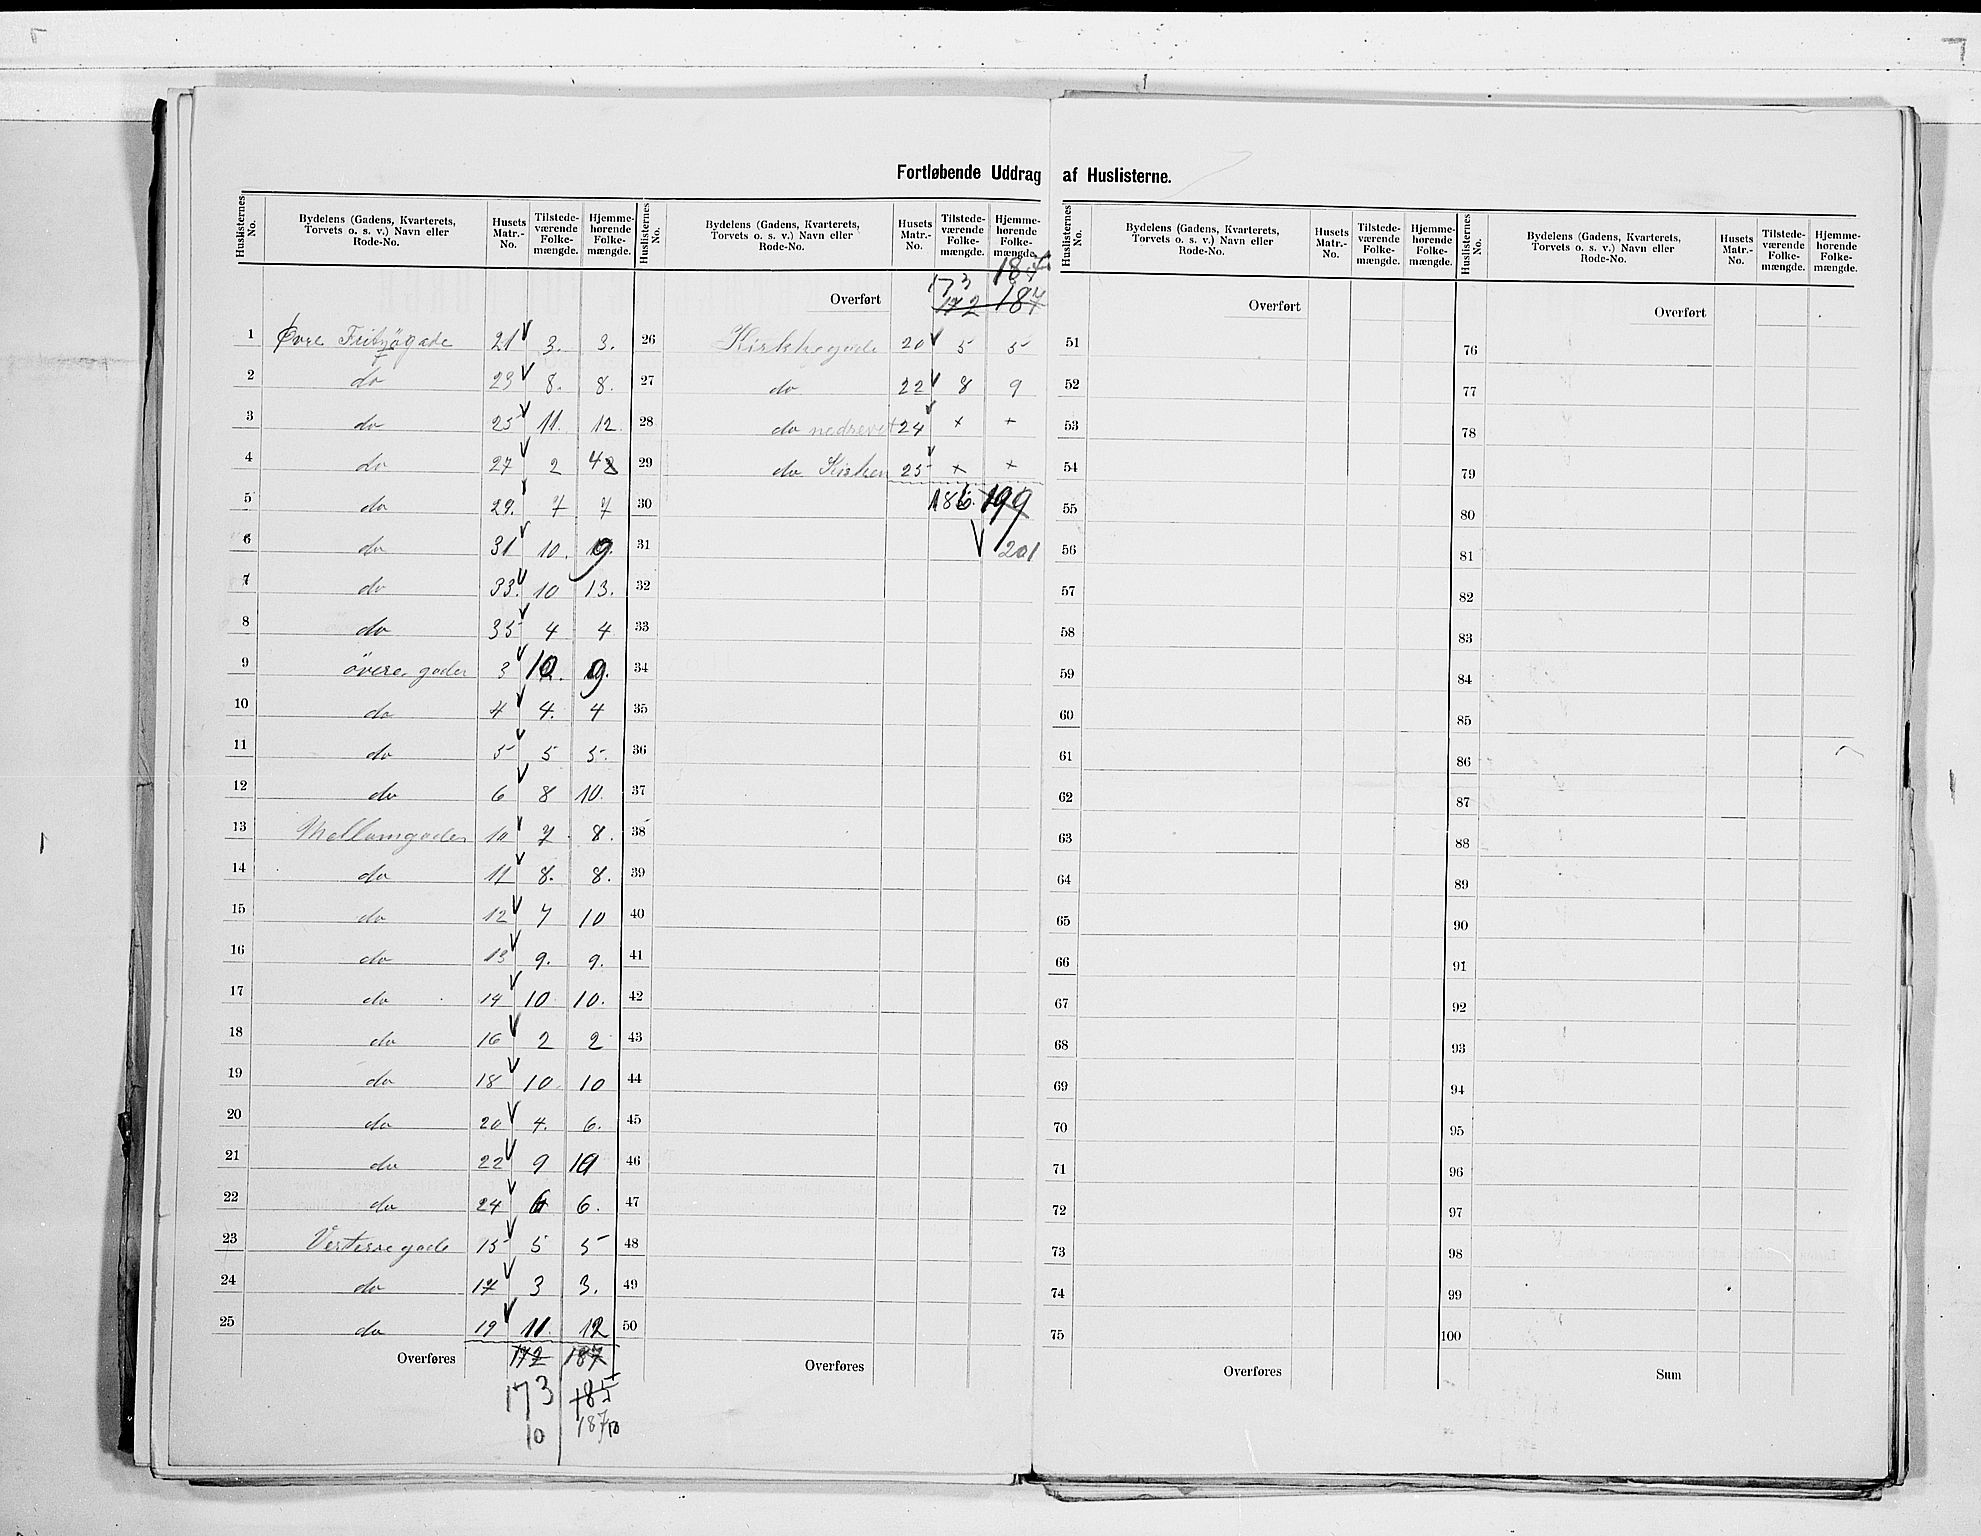 Fortløbende Uddrag af Huslisterne.
Huslisternes No. Bydelens (Gadens, Kvarterets, Torvets o. s. v.) Navn eller Rode-No. Husets Matr.-No. Tilstedeværende Folkemængde. Hjemmehørende Folkemængde.
1 Øvre Fribyøgade 21 3. 3.
2 do 23 8. 8.
3 do 25 11. 12.
4 do 27 2 4
5 do 29. 7 7
6 do 31 10. 9
7 do 33. 10 13.
8 do 35 4 4
9 övere gaden 3 10 9.
10 do 4 4. 4
11 do 5 5 5.
12 do 6 8 10.
13 Mellumgaden 10 7 8.
14 do 11 8. 8.
15 do 12 7 10
16 do 13 9. 9.
17 do 14 10 10.
18 do 16 2 2
19 do 18 10. 10
20 do 20 4. 6.
21 do 22 9 10
22 do 24 6 6.
23 Vesteregade 15 5 5
24 do 17 3 3.
25 do 19 11. 12
Overføres 172 187
173 185
10 187
Huslisternes No. Bydelens (Gadens, Kvarterets, Torvets o. s. v.) Navn eller Rode-No. Husets Matr.-No. Tilstedeværende Folkemængde. Hjemmehørende Folkemængde.
173 187
Overført 172 187
26 Kirkkegade 20 5 5
27 do 22 8 9
28 do nedrevet 24 + +
29 do Kirken 25 + +
30 186. 199
31 201
32
33
34
35
36
37
38
39
40
41
42
43
44
45
46
47
48
49
50
Overføres
Huslisternes No. Bydelens (Gadens, Kvarterets, Torvets o. s. v.) Navn eller Rode-No. Husets Matr.-No. Tilstedeværende Folkemængde. Hjemmehørende Folkemængde.
Overført
51
52
53
54
55
56
57
58
59
60
61
62
63
64
65
66
67
68
69
70
71
72
73
74
75
Overføres
Huslisternes No. Bydelens (Gadens, Kvarterets, Torvets o. s. v.) Navn eller Rode-No. Husets Matr.-No. Tilstedeværende Folkemængde. Hjemmehørende Folkemængde.
Overført
76
77
78
79
80
81
82
83
84
85
86
87
88
89
90
91
92
93
94
95
96
97
98
99
100
Sum